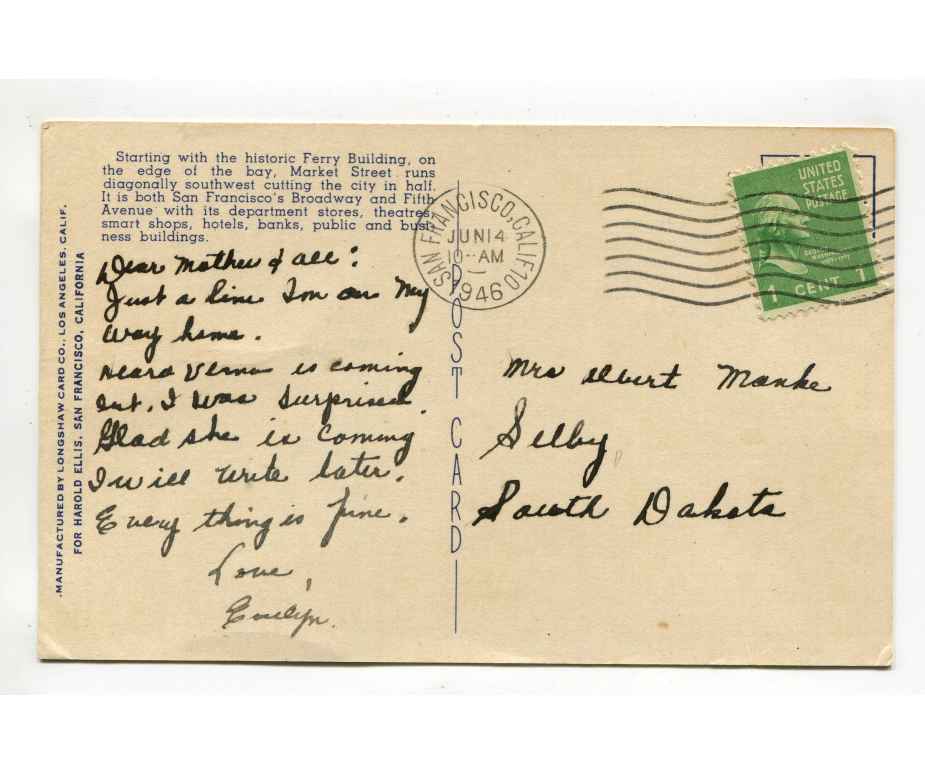 Starting with the historic Ferry Building, on
the edge of the bay, Market Street runs
diagonally southwest cutting the city in half.
It is both San Francisco's Broadway and Fifth
Avenue with its department stores, theatres,
smart shops, hotels, banks, public and busi-
ness buildings.
MANUFACTURED BY LONGSHAW CARD CO., LOS ANGELES, CALIF.
FOR HAROLD ELLIS, SAN FRANCISCO, CALIFORNIA
Dear Mother & all:
Just a line I'm on My
way home.
Heard Verna is coming
out. I was surprised.
Glad she is coming
I will write later.
Every thing is fine.
Love,
Evelyn.
POST CARD
SAN FRANCISCO, CALIF.
JUN 14
10-AM
1946
UNITED
STATES
POSTAGE
1 CENT 1
Mrs Albert Manke
Selby
South Dakota